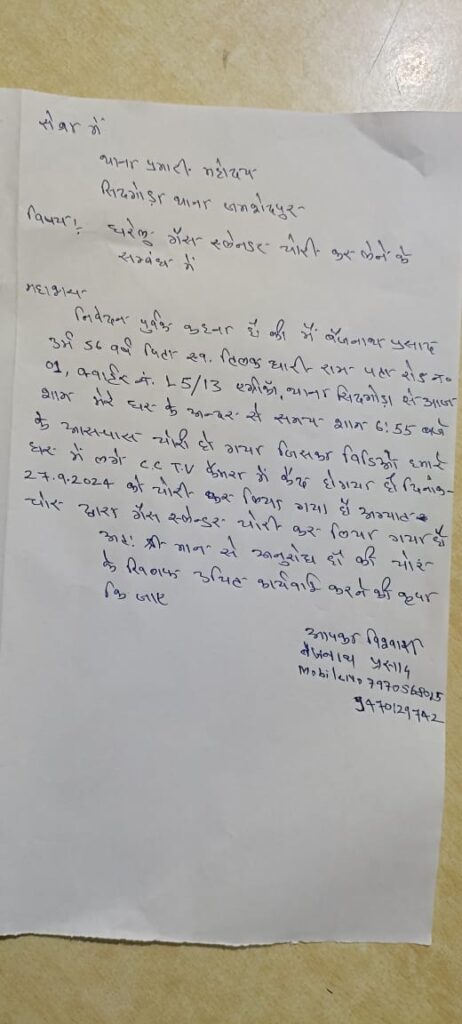 सेवा में
थाना प्रभारी महोदय
सिदगोड़ा थाना जमशेदपुर
विषय: घरेलु गैस स्लेनडर चोरी कर लेने के
सम्बंध में
महाशय
निवेदन पुर्वक कहना है की मैं बैजनाथ प्रसाद
उम्र 56 वर्ष पिता स्व. तिलक धारी राम पता रोड न०
01, क्वार्टर नं. L5/13 एग्रीको, थाना सिदगोड़ा से आज
शाम मेरे घर के अन्दर से समय शाम 6:55 बजे
के आसपास चोरी हो गया जिसका विडिओ हमारे
घर में लगे C.C.T.V कैमरा में कैद होगया है दिनांक-
27.9.2024 को चोरी कर लिया गया है अग्यात
चोर द्वारा गैस स्लेन्डर चोरी कर लिया गया है
अतः श्री मान से अनुरोध है की चोर
के खिलाफ उचित कार्यवाही करने की कृपा
कि जाए
आपका विश्वाशी
बैजनाथ प्रसाद
Mobile No 7970568015
9470129742